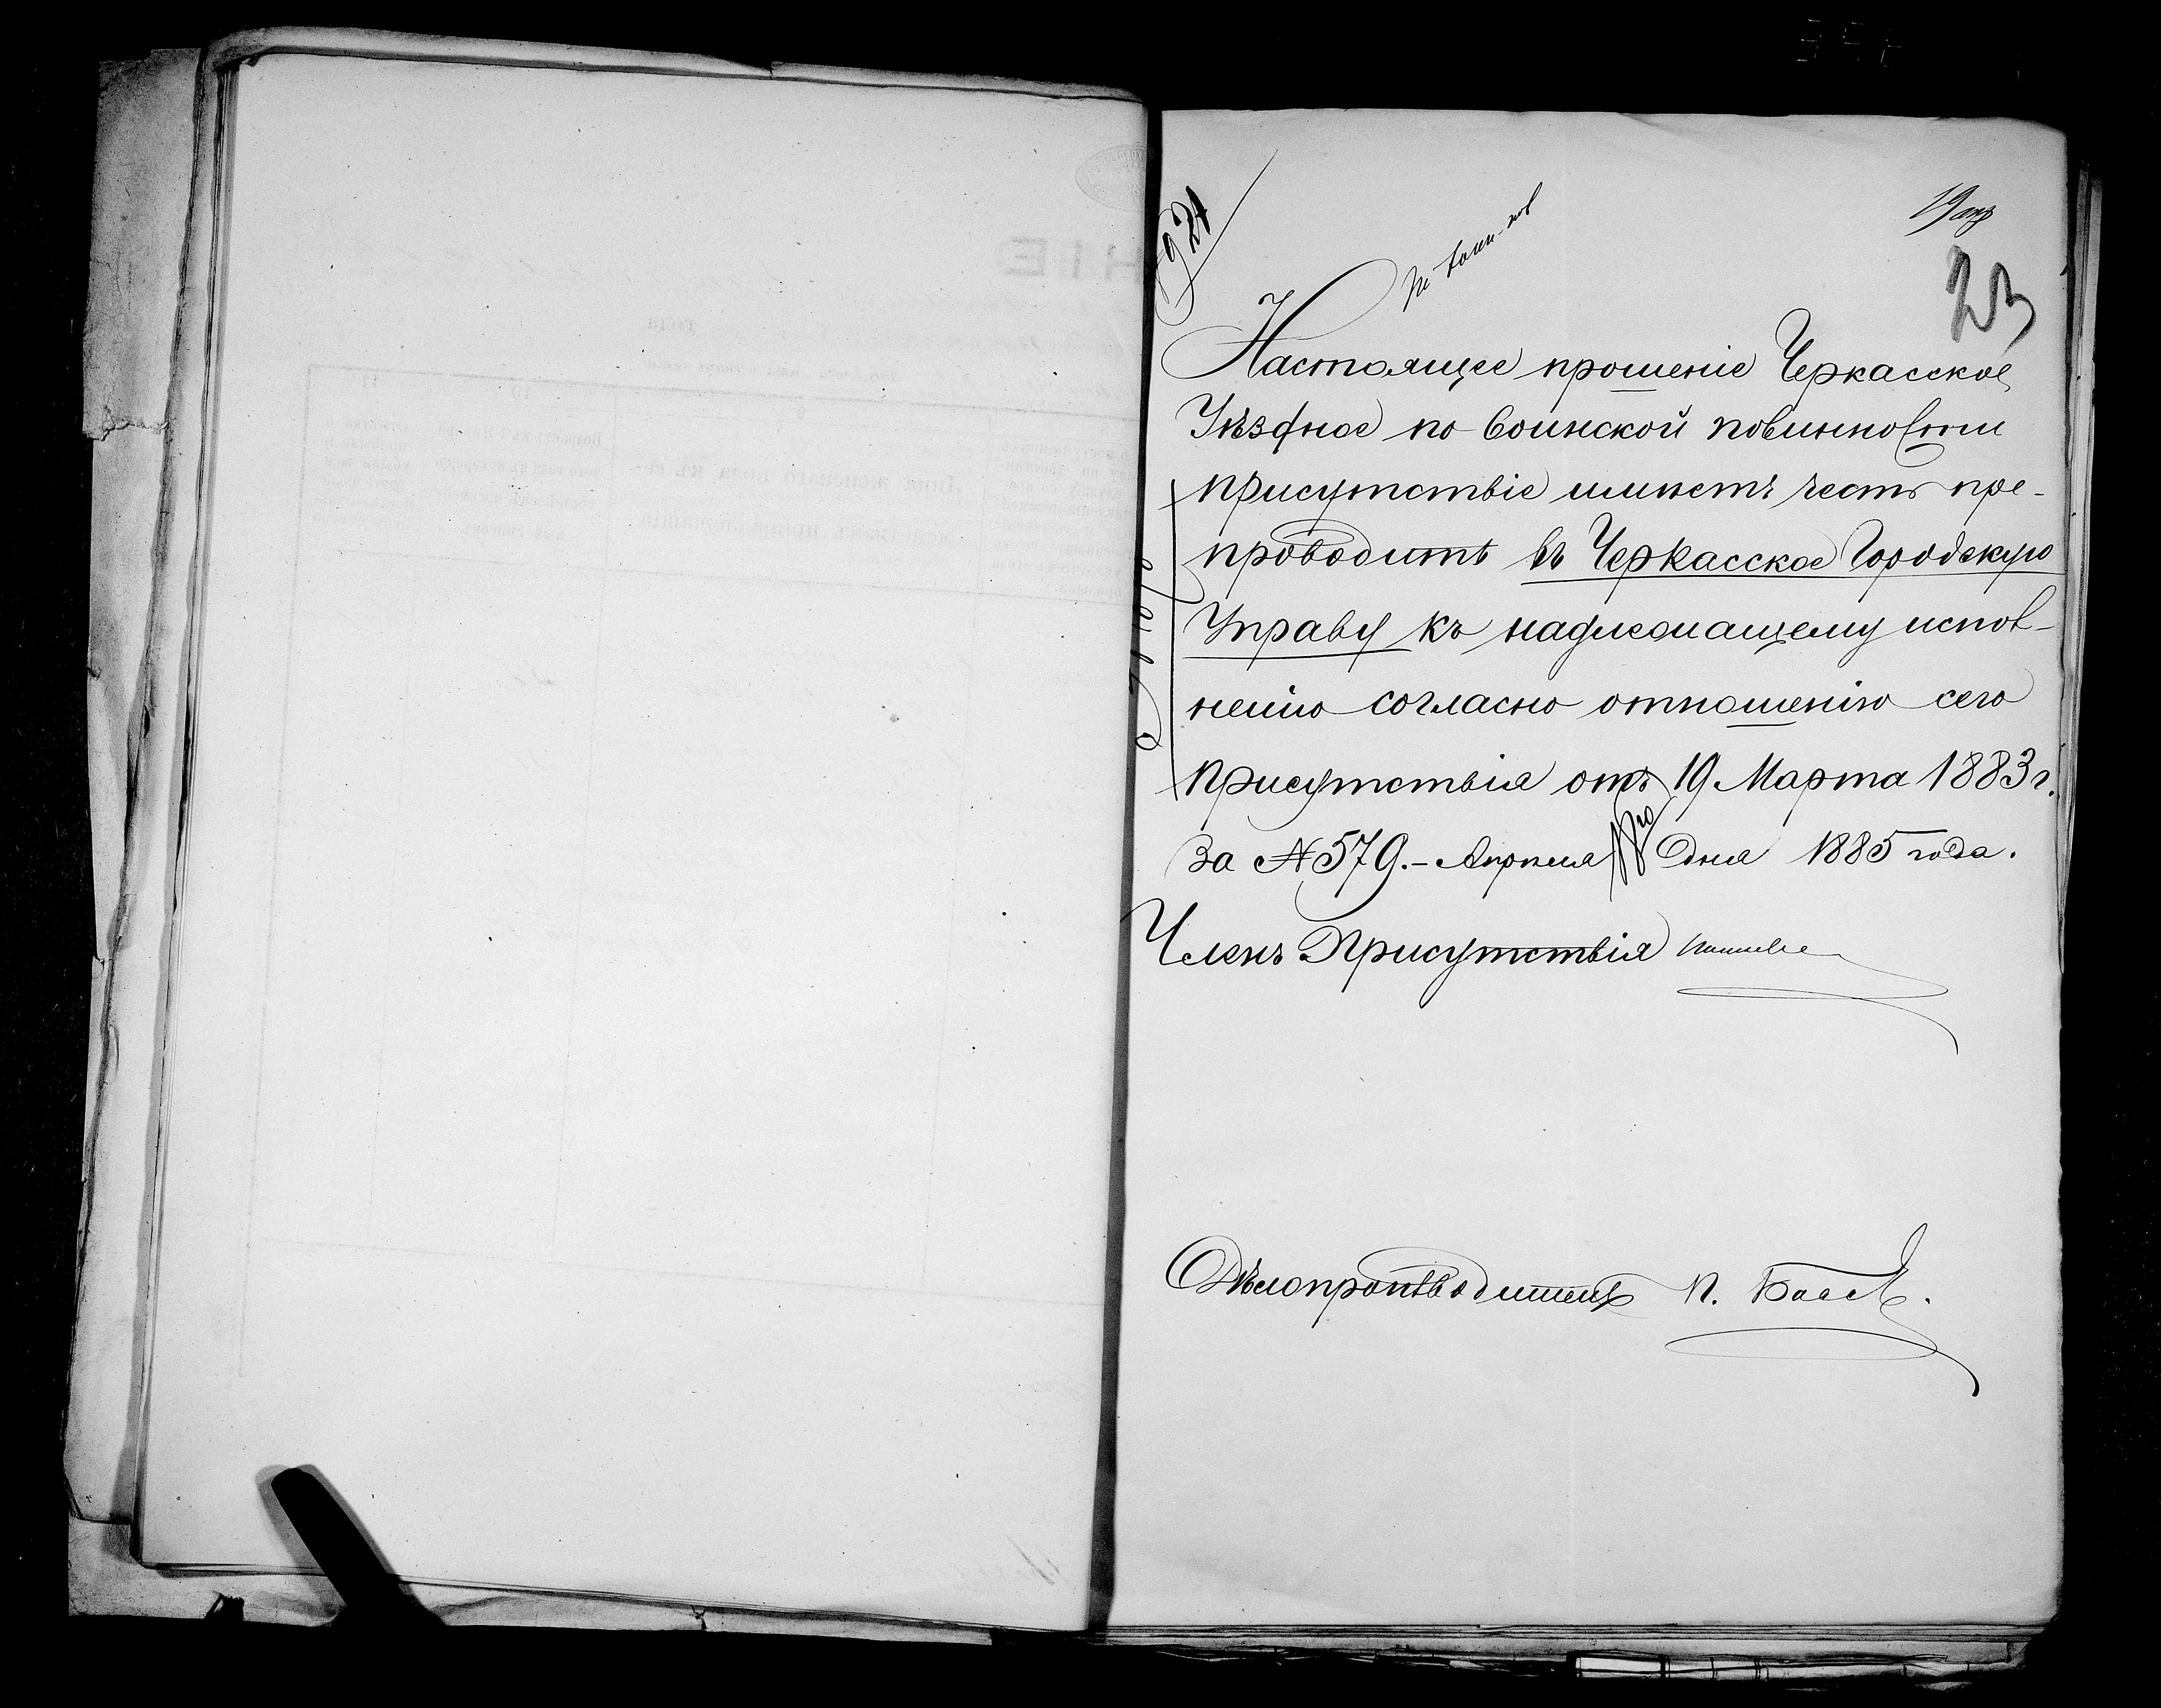 924
19 апр
23
Настоящее прошеніе Черкасское
Уѣздное по воинской повинности
присутствіе имѣетъ честь пре-
проводить въ Черкасское Городскую
Управу къ надлежащему испол-
ненію согласно отношенію сего
присутствія отъ 19 Марта 1883 г.
за № 579. – Апрѣля дня 1885 года.
Членъ Присутствія
Дѣлопроизводитель П.